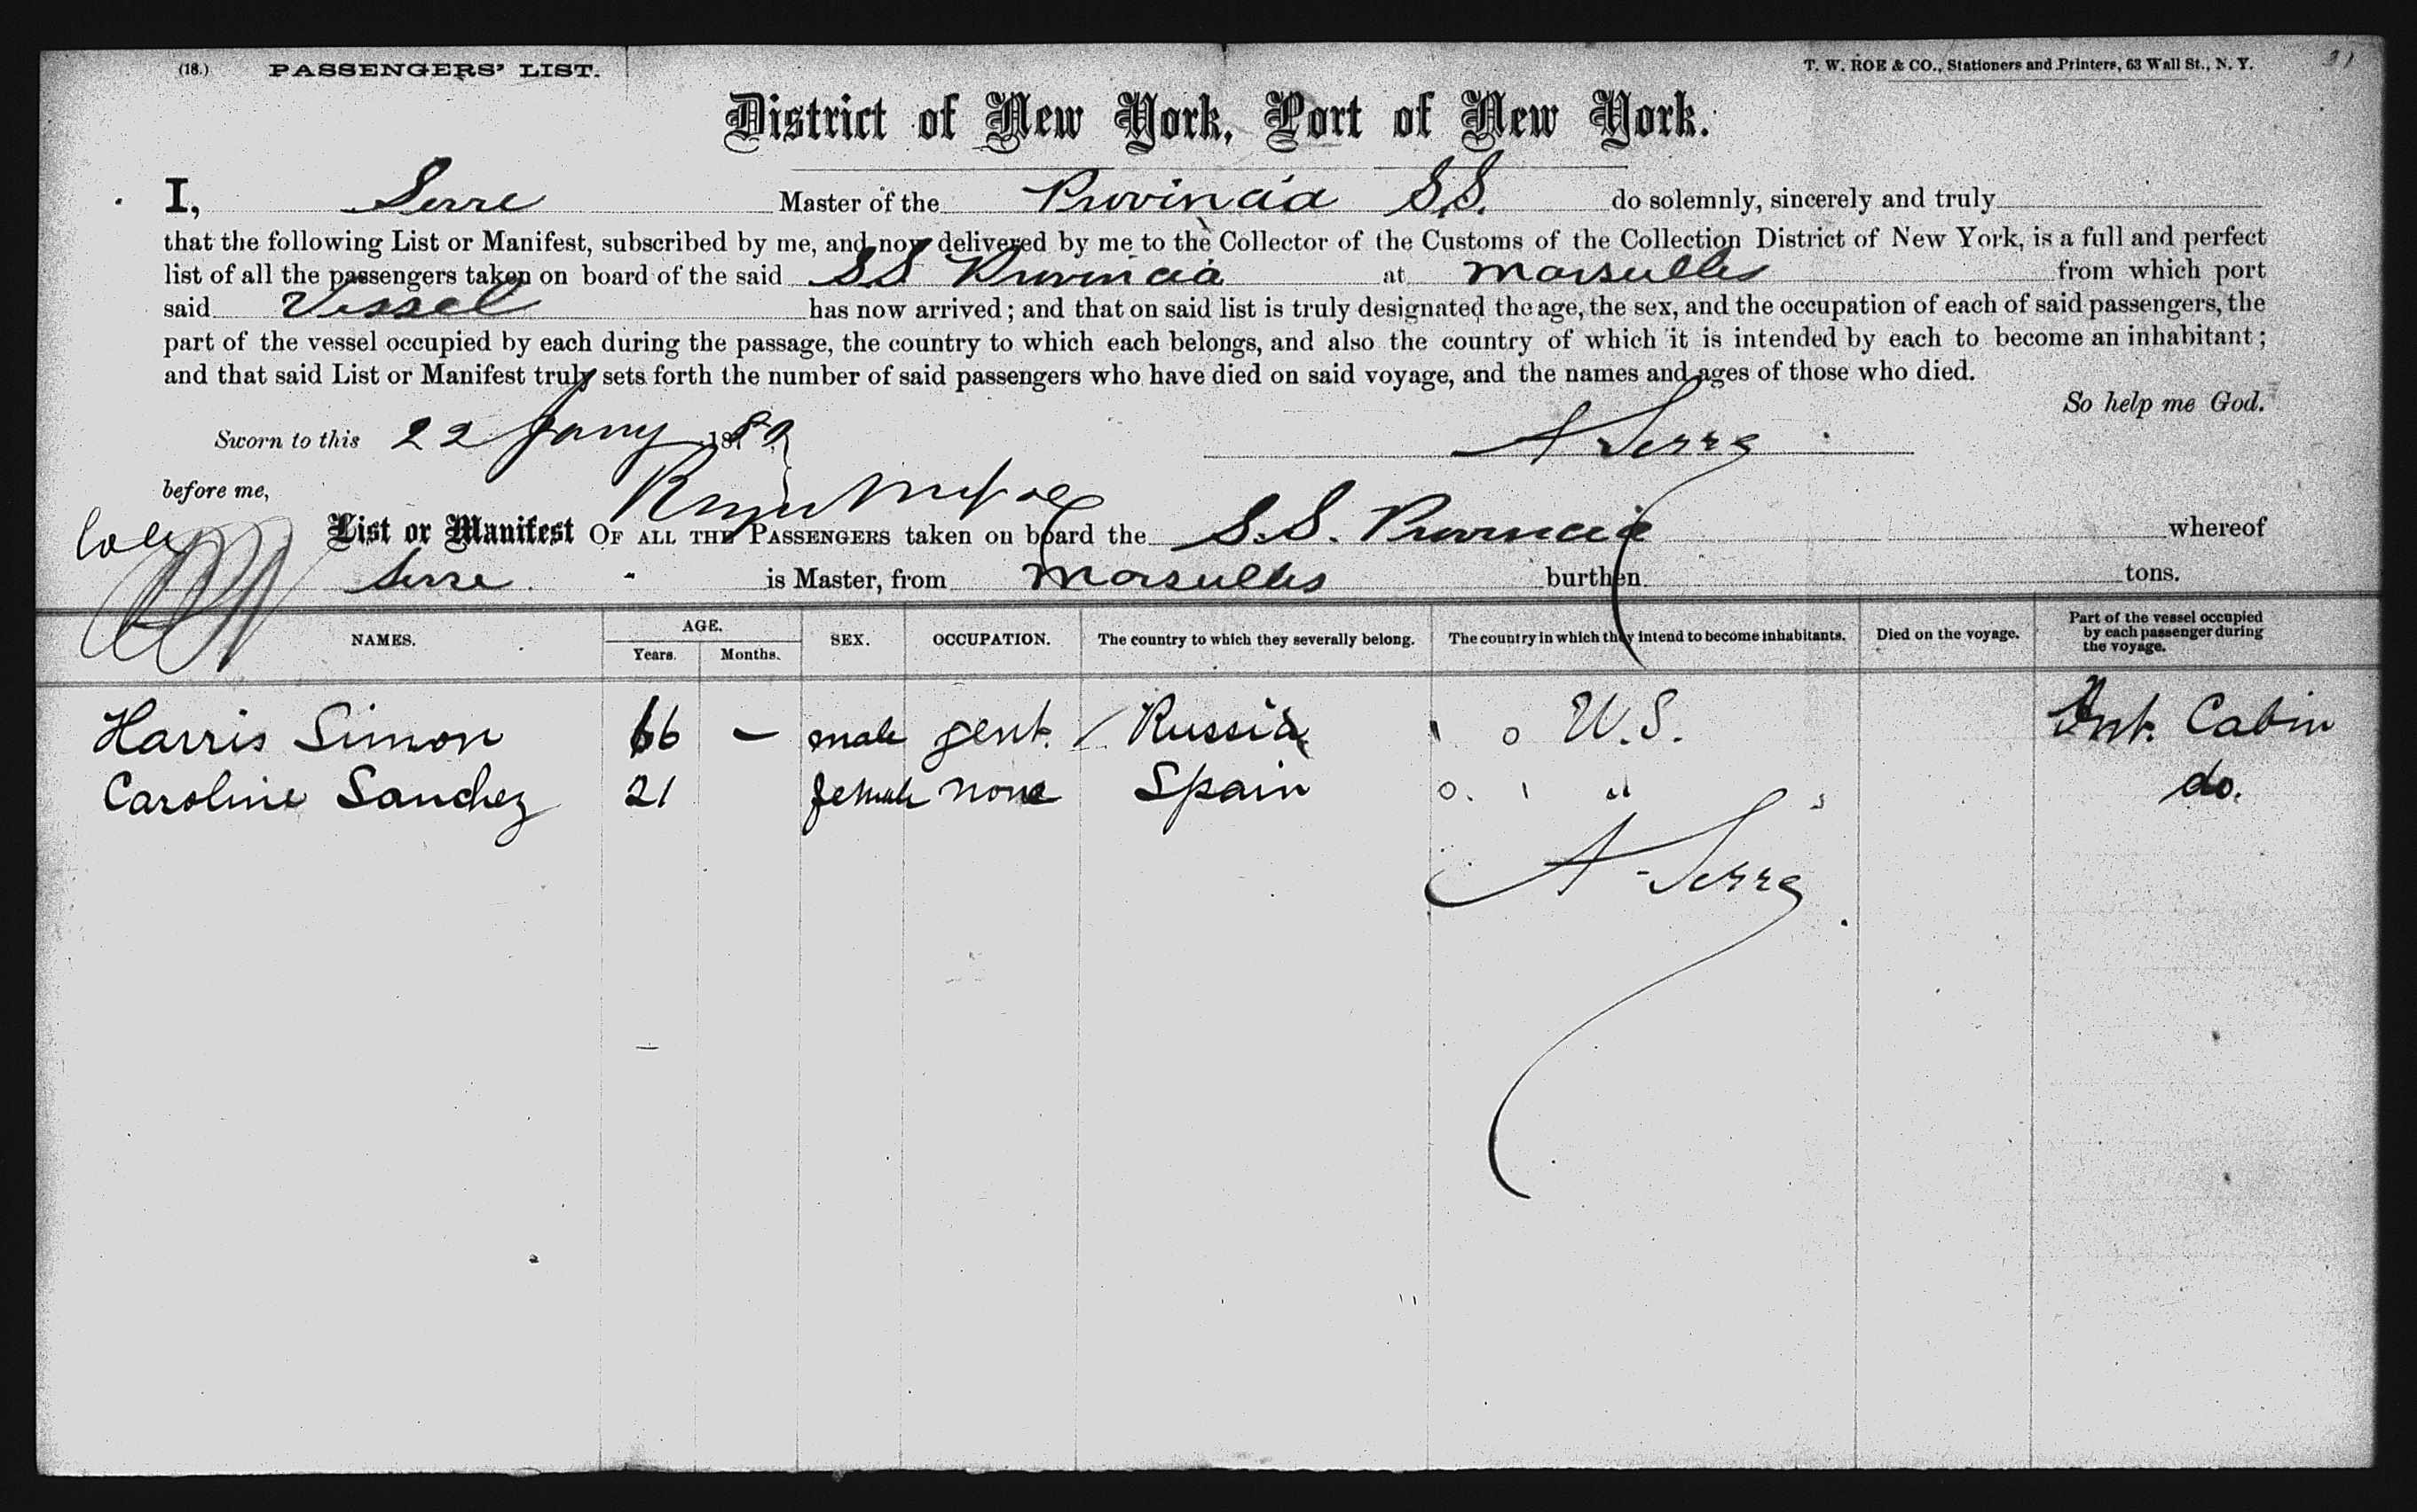 (18.) PASSENGERS' LIST. T. W. ROE & CO., Stationers and Printers, 63 Wall St., N. Y.
District of New York, Port of New York.
I, Serre Master of the Provincia S.S. do solemnly, sincerely and truly
that the following List or Manifest, subscribed by me, and now delivered by me to the Collector of the Customs of the Collection District of New York, is a full and perfect
list of all the passengers taken on board of the said SS Provincia at Marseilles from which port
said Vessel has now arrived; and that on said list is truly designated the age, the sex, and the occupation of each of said passengers, the
part of the vessel occupied by each during the passage, the country to which each belongs, and also the country of which it is intended by each to become an inhabitant;
and that said List or Manifest truly sets forth the number of said passengers who have died on said voyage, and the names and ages of those who died.
So help me God.
Sworn to this 22 Jany 1889 A Serre
before me,
List or Manifest OF ALL THE PASSENGERS taken on board the S.S. Provincia whereof
Serre is Master, from Marseilles burthen tons.
NAMES. AGE. Years. Months. SEX. OCCUPATION. The country to which they severally belong. The country in which they intend to become inhabitants. Died on the voyage. Part of the vessel occupied by each passenger during the voyage.
Harris Simon 66 – male gent. Russia U.S. Cabin
Caroline Sanchez 21 female none Spain " do.
A Serre